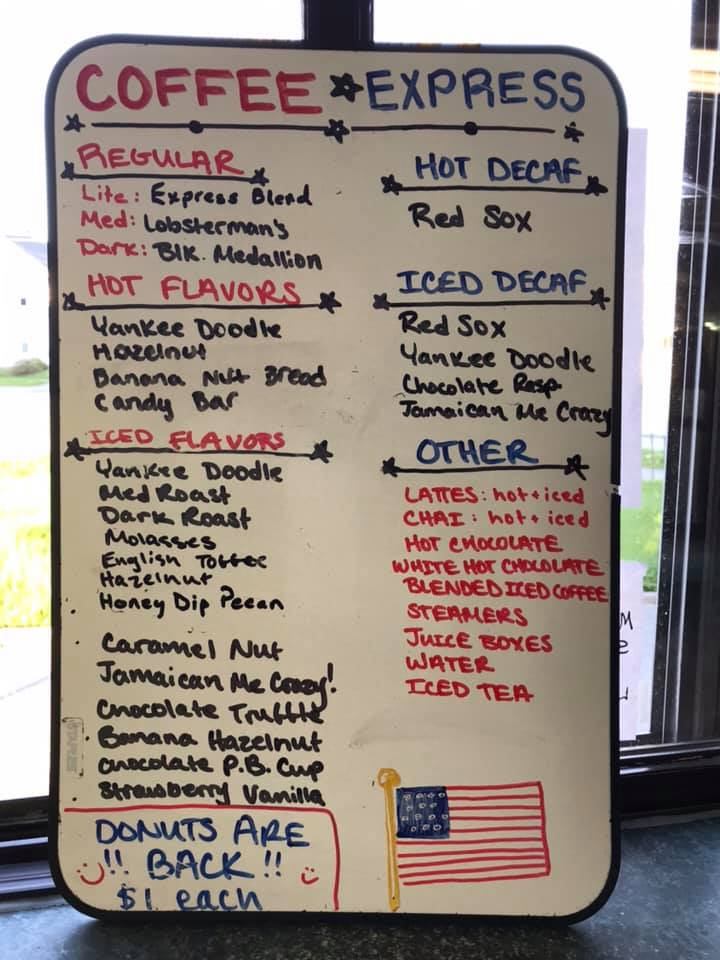 COFFEE EXPRESS
REGULAR
Lite: Express Blend
Med: Lobsterman's
Dark: Blk. Medallion
HOT FLAVORS
Yankee Doodle
Hazelnut
Banana Nut Bread
Candy Bar
ICED FLAVORS
Yankee Doodle
Med Roast
Dark Roast
Molasses
English Toffee
Hazelnut
Honey Dip Pecan
Caramel Nut
Jamaican Me Crazy!
Chocolate Truffle
Banana Hazelnut
Chocolate P.B. Cup
Strawberry Vanilla
DONUTS ARE
!! BACK !!
$1 each
HOT DECAF
Red Sox
ICED DECAF
Red Sox
Yankee Doodle
Chocolate Rasp
Jamaican Me Crazy
OTHER
LATTES: hot + iced
CHAI: hot + iced
HOT CHOCOLATE
WHITE HOT CHOLOLATE
BLENDED ICED COFFEE
STEAMERS
JUICE BOXES
WATER
ICED TEA
STAPLES